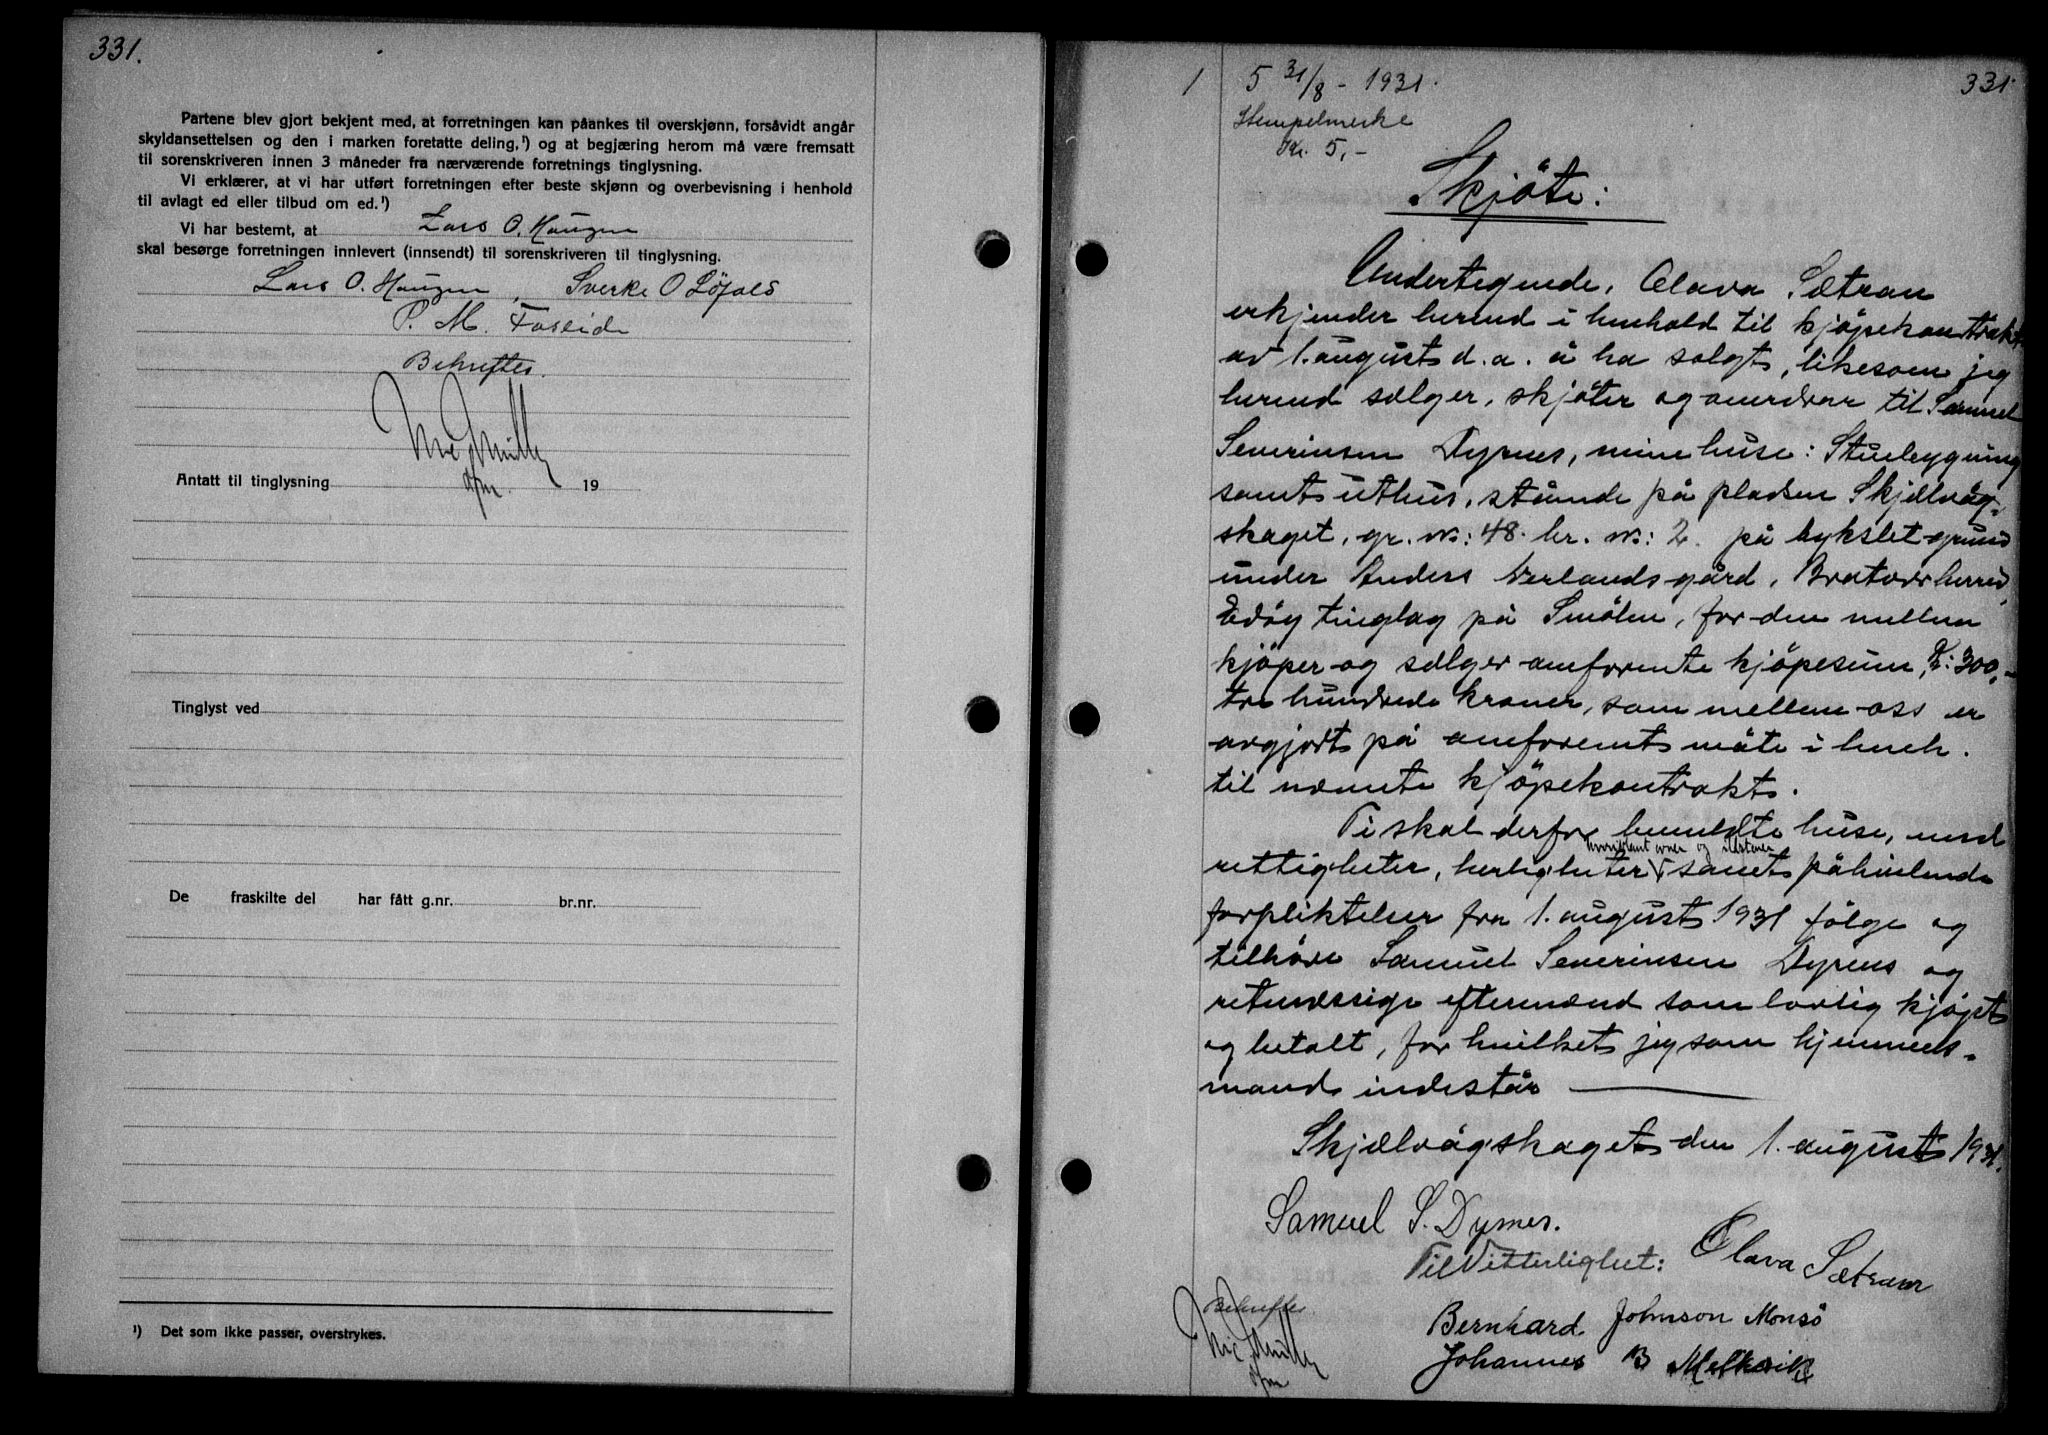 331.
Partene blev gjort bekjent med, at forretningen kan påankes til overskjønn, forsåvidt angår
skyldansettelsen og den i marken foretatte deling,¹) og at begjæring herom må være fremsatt
til sorenskriveren innen 3 måneder fra nærværende forretnings tinglysning.
Vi erklærer, at vi har utført forretningen efter beste skjønn og overbevisning i henhold
til avlagt ed eller tilbud om ed.¹)
Vi har bestemt, at Lars O. Haugen
skal besørge forretningen innlevert (innsendt) til sorenskriveren til tinglysning.
Lars O. Haugen, Sverke O Löfals
P. M. Foseide
Bekreftes.
Antatt til tinglysning 19
Tinglyst ved
De fraskilte del har fått g.nr. br.nr.
¹) Det som ikke passer, overstrykes.
1 5 31/8 - 1931. 331.
Stempelmerke
Kr. 5,-
Skjöte:
Undertegnede, Olava Sætran
erkjender herved i henhold til kjöpekontrakt
av 1. august d. a. å ha solgt, likesom jeg
herved sælger, skjöter og overdrar til Samuel
Severinsen Dyrnes, mine huse: Stuebygning
samt uthus, stående på pladsen Skjælvåg-
skaget, gr. nr: 48. br. nr: 2. på bykslet grund
under Anders Verlandsgård, Brattvær herred,
Edöy tinglag på Smölen, for den mellem
kjöper og sælger omforente kjöpesum, Kr: 300,-
tre hundrede kroner, som mellem oss er
avgjort på omforent måte i henh.
til nævnte kjöpekontrakt.
Ti skal derfor bemeldte huse, med
hvoriblant ovner og
rettigheter, herligheter samt påhvilende
forpliktelser fra 1. august 1931 fölge og
tilhöre Samuel Severinsen Dyrnes og
retmæssige eftermænd som lovlig kjöpt
og betalt, for hvilket jeg som hjemmels-
mand indestår
Skjælvågskaget den 1. august 1931.
Samuel S. Dyrnes.
Til Vitterlighet: Olava Sætran
Bekreftes.
Bernhard Johnson Monsö
Johannes B Melkvik